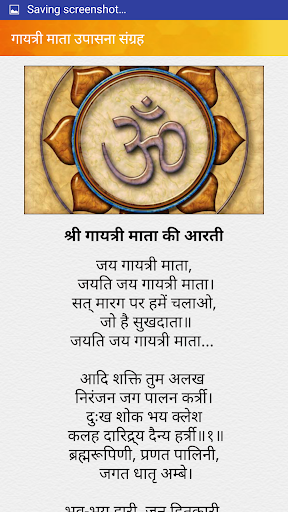 Saving screenshot...
गायत्री माता उपासना संग्रह
ॐ
श्री गायत्री माता की आरती
जय गायत्री माता,
जयति जय गायत्री माता।
सत् मारग पर हमें चलाओ,
जो है सुखदाता॥
जयति जय गायत्री माता...
आदि शक्ति तुम अलख
निरंजन जग पालन कर्त्री।
दुःख शोक भय क्लेश
कलह दारिद्र्य दैन्य हर्त्री॥१॥
ब्रह्मरूपिणी, प्रणत पालिनी,
जगत धातृ अम्बे।
भव-भय हारी, जन हितकारी,